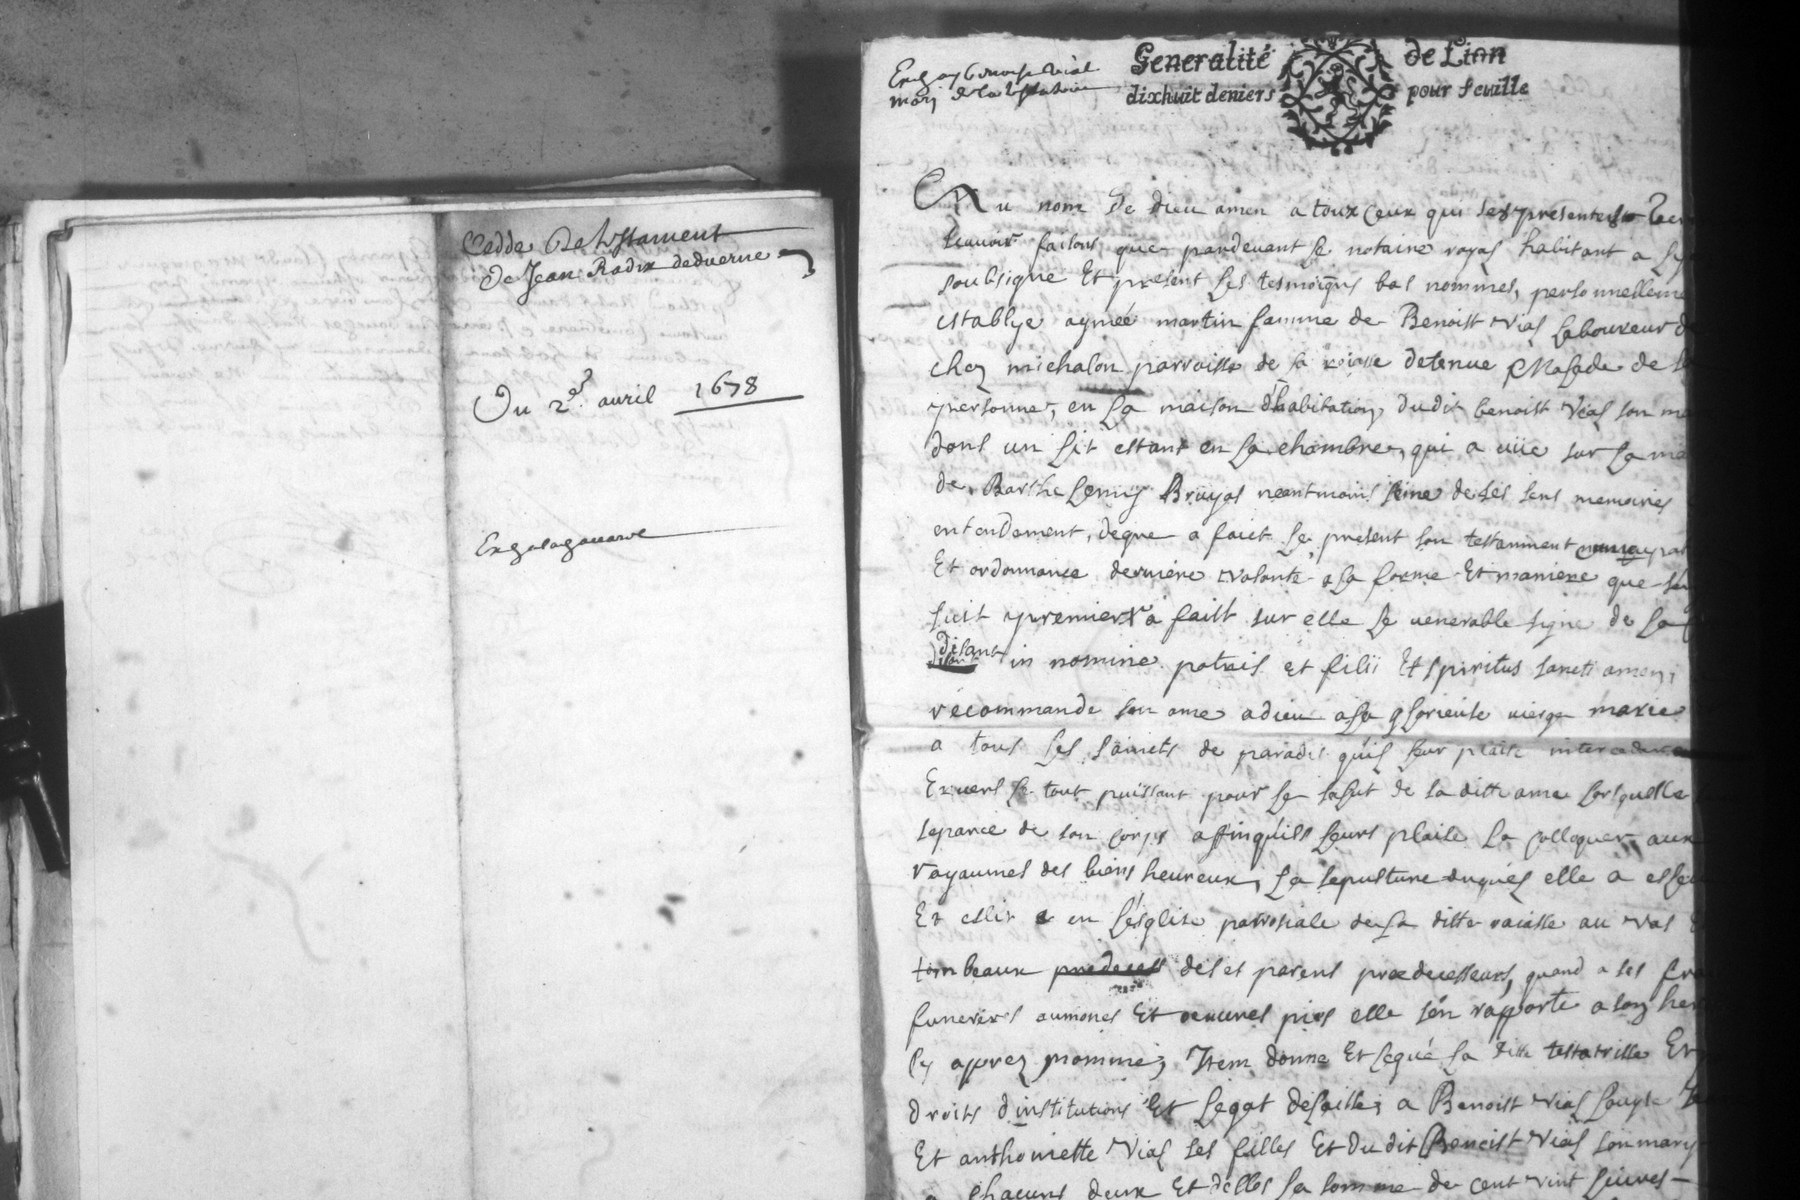 Cedde De testament
De Jean Radix deduerne
Du 2e. auril 1678
Generalité de Lion
dixhuit deniers pour feuille
mary de la testatrice
Au nom de dieu amen a toux ceux qui ses presentes
scauoir faisons que pardeuant le notaire royal habitant a
soubsigne Et present les tesmoigns bas nommés, personnelleme
establye aymée martin famme de Benoist vial laboureur de
chez michalon parroisse de la raiasse detenue Malade de
personne, en la maison d'habitation dudit benoist vial son ma
dans un lit estant en la chambre, qui a viie sur la
de Barthelemy Bruyas neantmoins saine de ses sens memoires
entendement, degre a faict le present son testamment
Et ordonnance derniere volonte a la forme Et maniere que
suit premier a faist sur elle le venerable signe de la
disant in nomine patris et filii Et spiritus sancti amen,
recommande son ame a dieu a la glorieuse vierge marie
a tous les saincts de paradis quil leur plaise interceder
Enuers le tout puissant pour le salut de sa ditte ame lorsquelle
separee de son corps affinquils leurs plaise la colloquer aux
royaumes des biens heureux, La sepulture duquel elle a esleu
Et eslit en l'esglise parrosiale de la ditte raiasse au vas
tombeaux de ses parens predecesseurs, quand a ses frai
funerires aumones Et oeuures pies elle s'en rapporte a son her
cy aprez nommé, Item donne Et legué la ditte testatrisse
droits d'institutions Et legat delaisse a Benoist vial
Et anthoinette vial ses filles Et du dit Benoist vial son mary
a chacuns deux Et d'elles la somme de cent vint liures